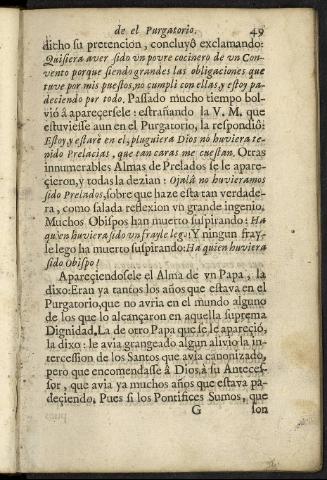 de el Purgatorio. 49
ditho su pretencion, concluyô exclamando:
Quisiera aver sido vn povre cocinero de vn Con-
vento porque siendo grandes las obligaciones que
tuve por mis puestos, no cumpli con ellas, y estoy pa-
deciendo por todo. Passado mucho tiempo bol-
viô â apareçersele: estrañando la V. M. que
estuviesse aun en el Purgatorio, la respondiô:
Estoy, y estarè en el, pluguiera Dios no huviera te-
nido Prelacias, que tan caras me cuestan. Otras
innumerables Almas de Prelados se le apare-
çieron, y todas la dezian: Ojalâ no huvieramos
sido Prelados, sobre que haze esta tan verdade-
ra, como salada reflexion vn grande ingenio.
Muchos Obispos han muerto suspirando: Ha
quen huviera sido vn frayle lego! Y ningun fray-
le lego ha muerto suspirando: Ha quien huviera
sido Obispo!
Apareçiendosele el Alma de vn Papa, la
dixo: Eran ya tantos los años que estava en el
Purgatorio, que no avria en el mundo alguno
de los que lo alcançaron en aquella suprema
Dignidad. La de otro Papa que se le apareciô,
la dixo: le avia grangeado algun alivio la in-
tercession de los Santos que avia canonizado,
pero que encomendasse â Dios, â su Anteces-
sor, que avia ya muchos años que estava pa-
deçiendo. Pues si los Pontifices Sumos, que
G son